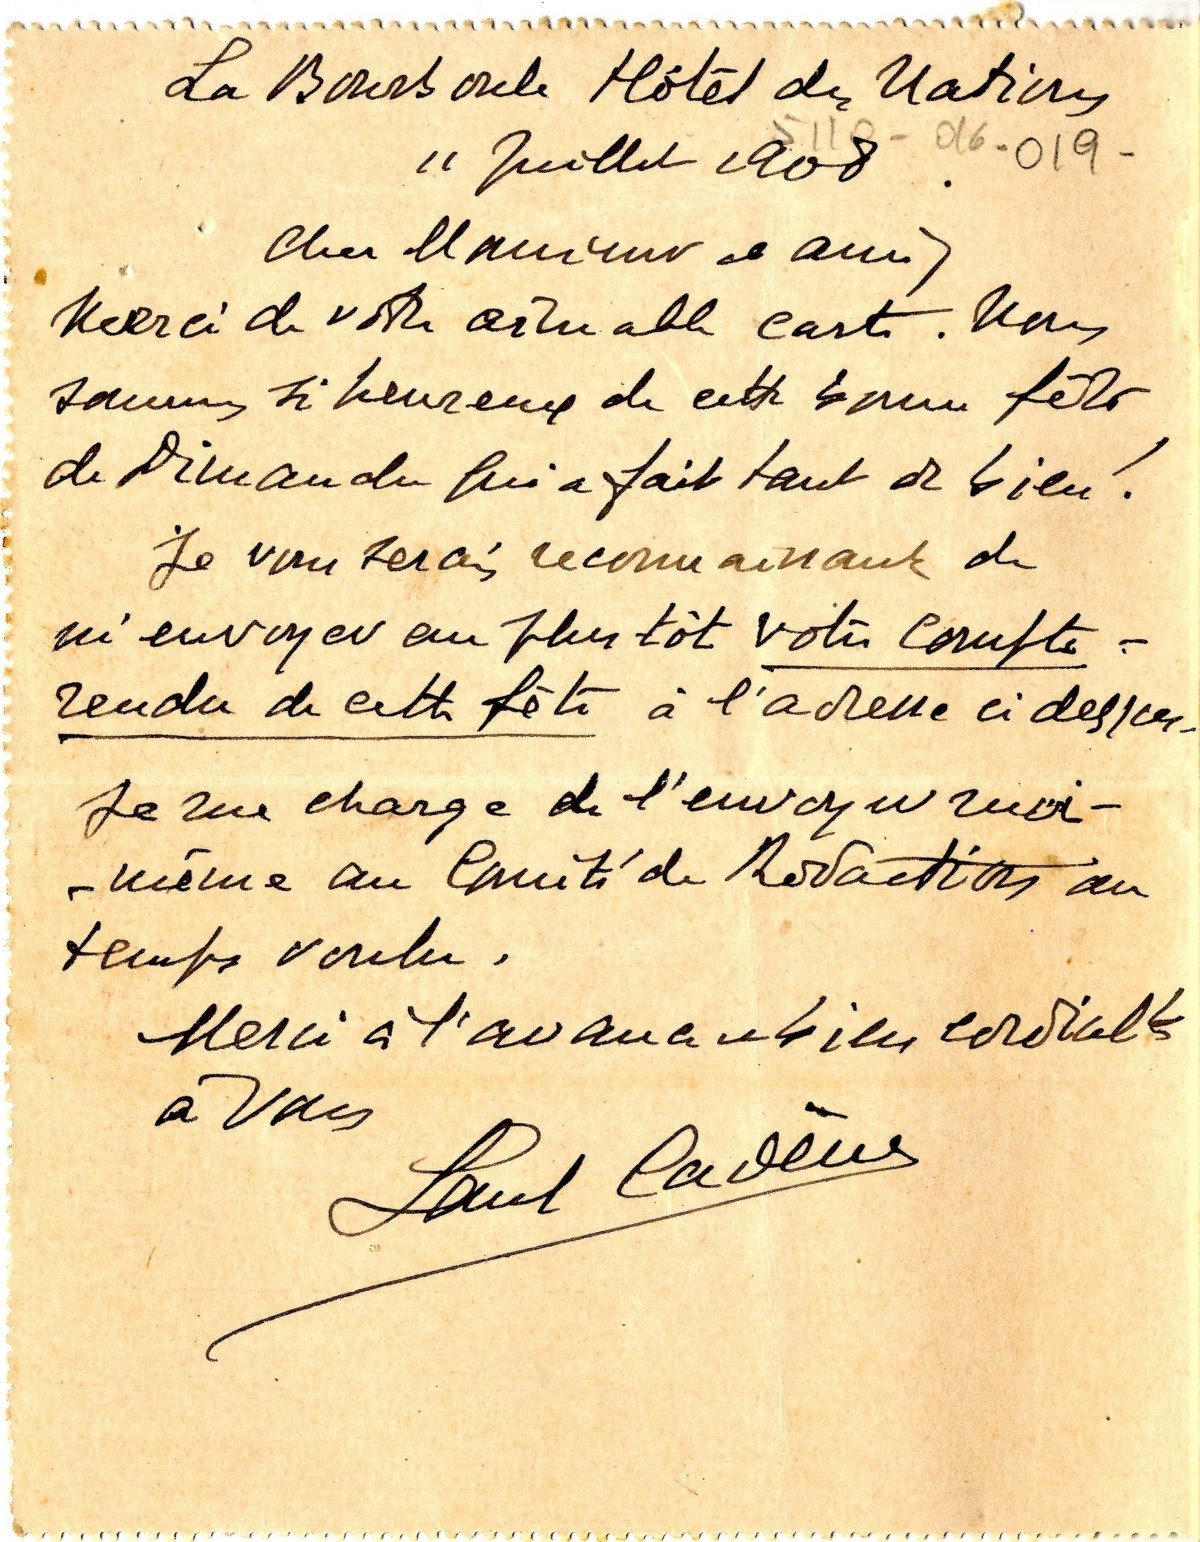 La Bourboule Hôtel des Nations
11 Juillet 1908
5110 - 016 - 019 -
Cher Monsieur et ami,
Merci de votre aimable carte. Nous
sommes si heureux de cette bonne fête
de Dimanche qui a fait tant de bien !
Je vous serais reconnaissant de
m'envoyer au plus tôt votre compte-
rendu de cette fête à l'adresse ci dessus.
Je me charge de l'envoyer moi-
-même au Comité de Rédaction au
temps voulu.
Merci à l'avance et bien cordialt
à vous
Paul Cadène